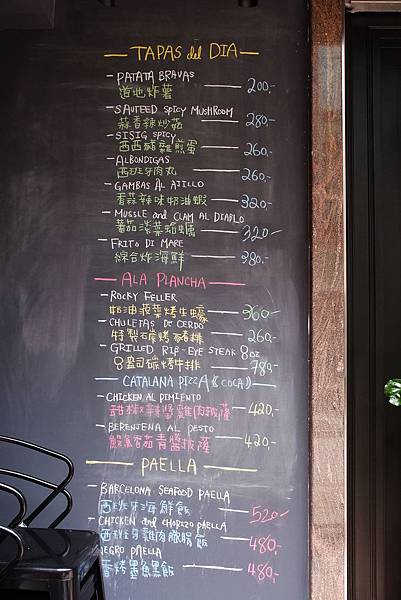 TAPAS del DIA
- PATATA BRAVAS
道地炸薯 200.-
- SAUTEED SPICY MUSHROOM
蒜香辣炒菇 280.-
- SISIG SPICY
西西豬雞煎蛋 260.-
- ALBONDIGAS
西班牙肉丸 260.-
- GAMBAS AL AJILLO
香蒜辣味奶油蝦 320.-
- MUSSLE and CLAM AL DIABLO
蕃茄淡菜蛤蠣 320.-
- FRITO DI MARE
綜合炸海鮮 380.-
ALA PLANCHA
- ROCKY FELLER
奶油菠菜烤生蠔 360.-
- CHULETAS DE CERDO
特製碳烤豬排 260.-
- GRILLED RIB-EYE STEAK 8oz
8盎司碳烤牛排 780.-
CATALANA PIZZA (COCA)
- CHICKEN AL PIMIENTO
甜椒辣醬雞肉披薩 420.-
- BERENJENA AL PESTO
鯷魚番茄青醬披薩 420.-
PAELLA
- BARCELONA SEAFOOD PAELLA
西班牙海鮮飯 520.-
- CHICKEN and CHORIZO PAELLA
西班牙雞肉臘腸飯 480.-
NEGRO PAELLA
香烤墨魚黑飯 480.-